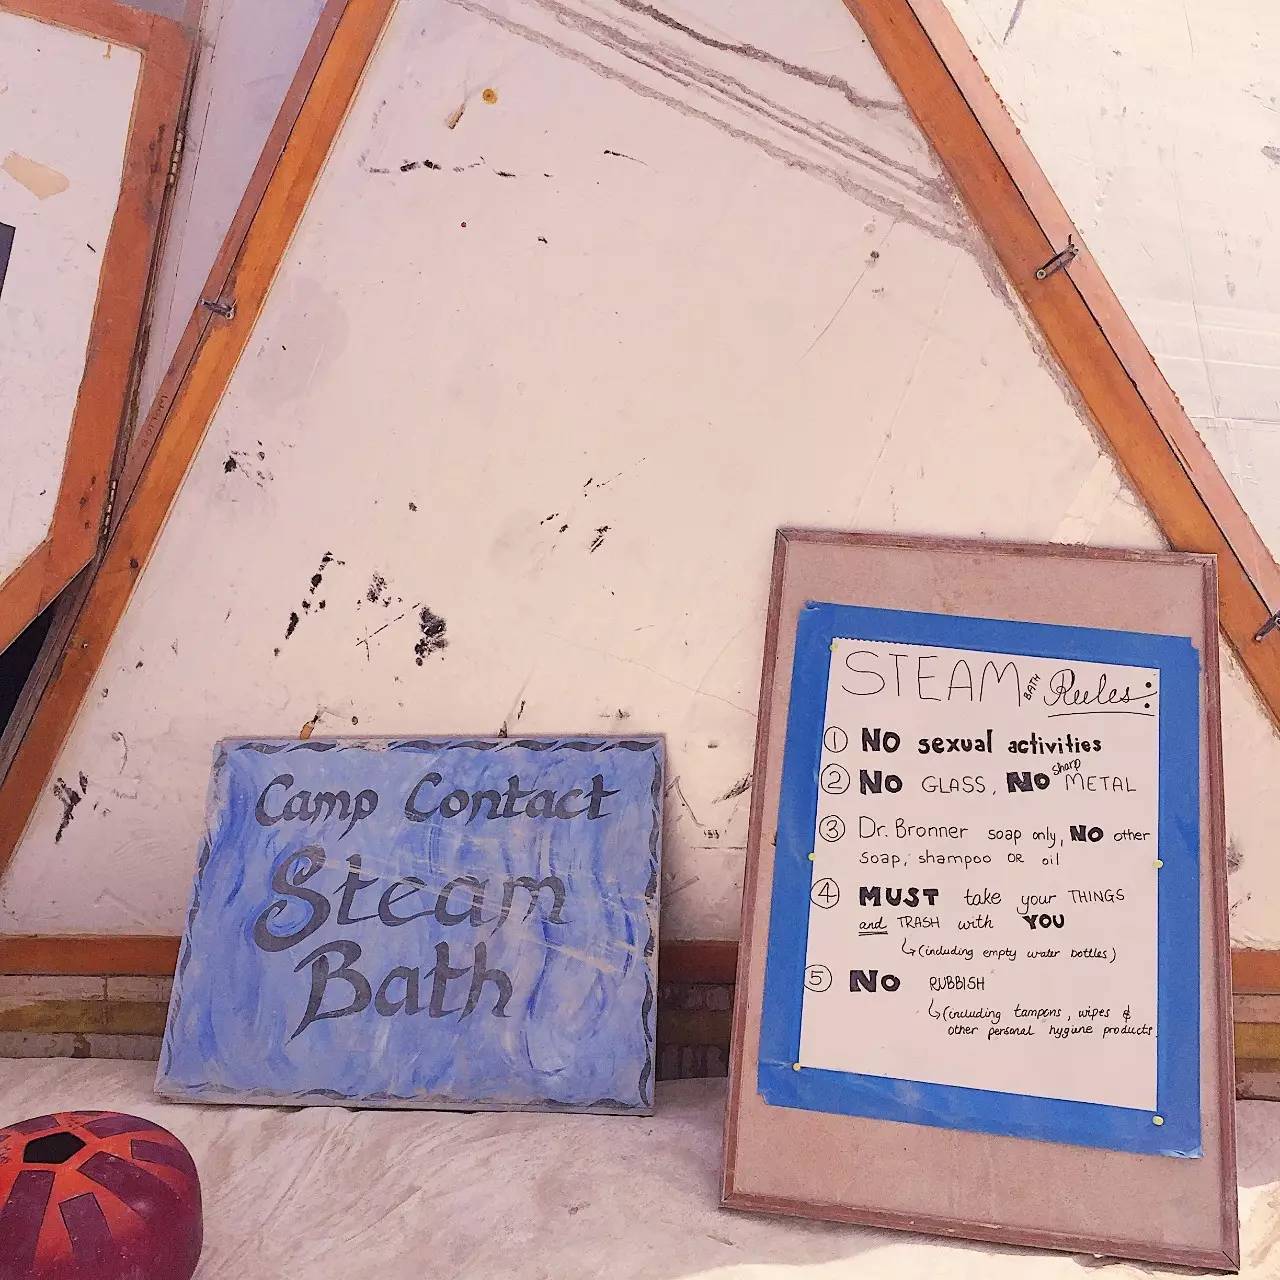 Camp Contact
Steam
Bath
STEAM BATH Rules:
① NO sexual activities
② NO GLASS, NO sharp METAL
③ Dr. Bronner soap only, NO other
soap, shampoo OR oil
④ MUST take your THINGS
and TRASH with YOU
↳(including empty water bottles)
⑤ NO RUBBISH
↳(including tampons, wipes &
other personal hygine products